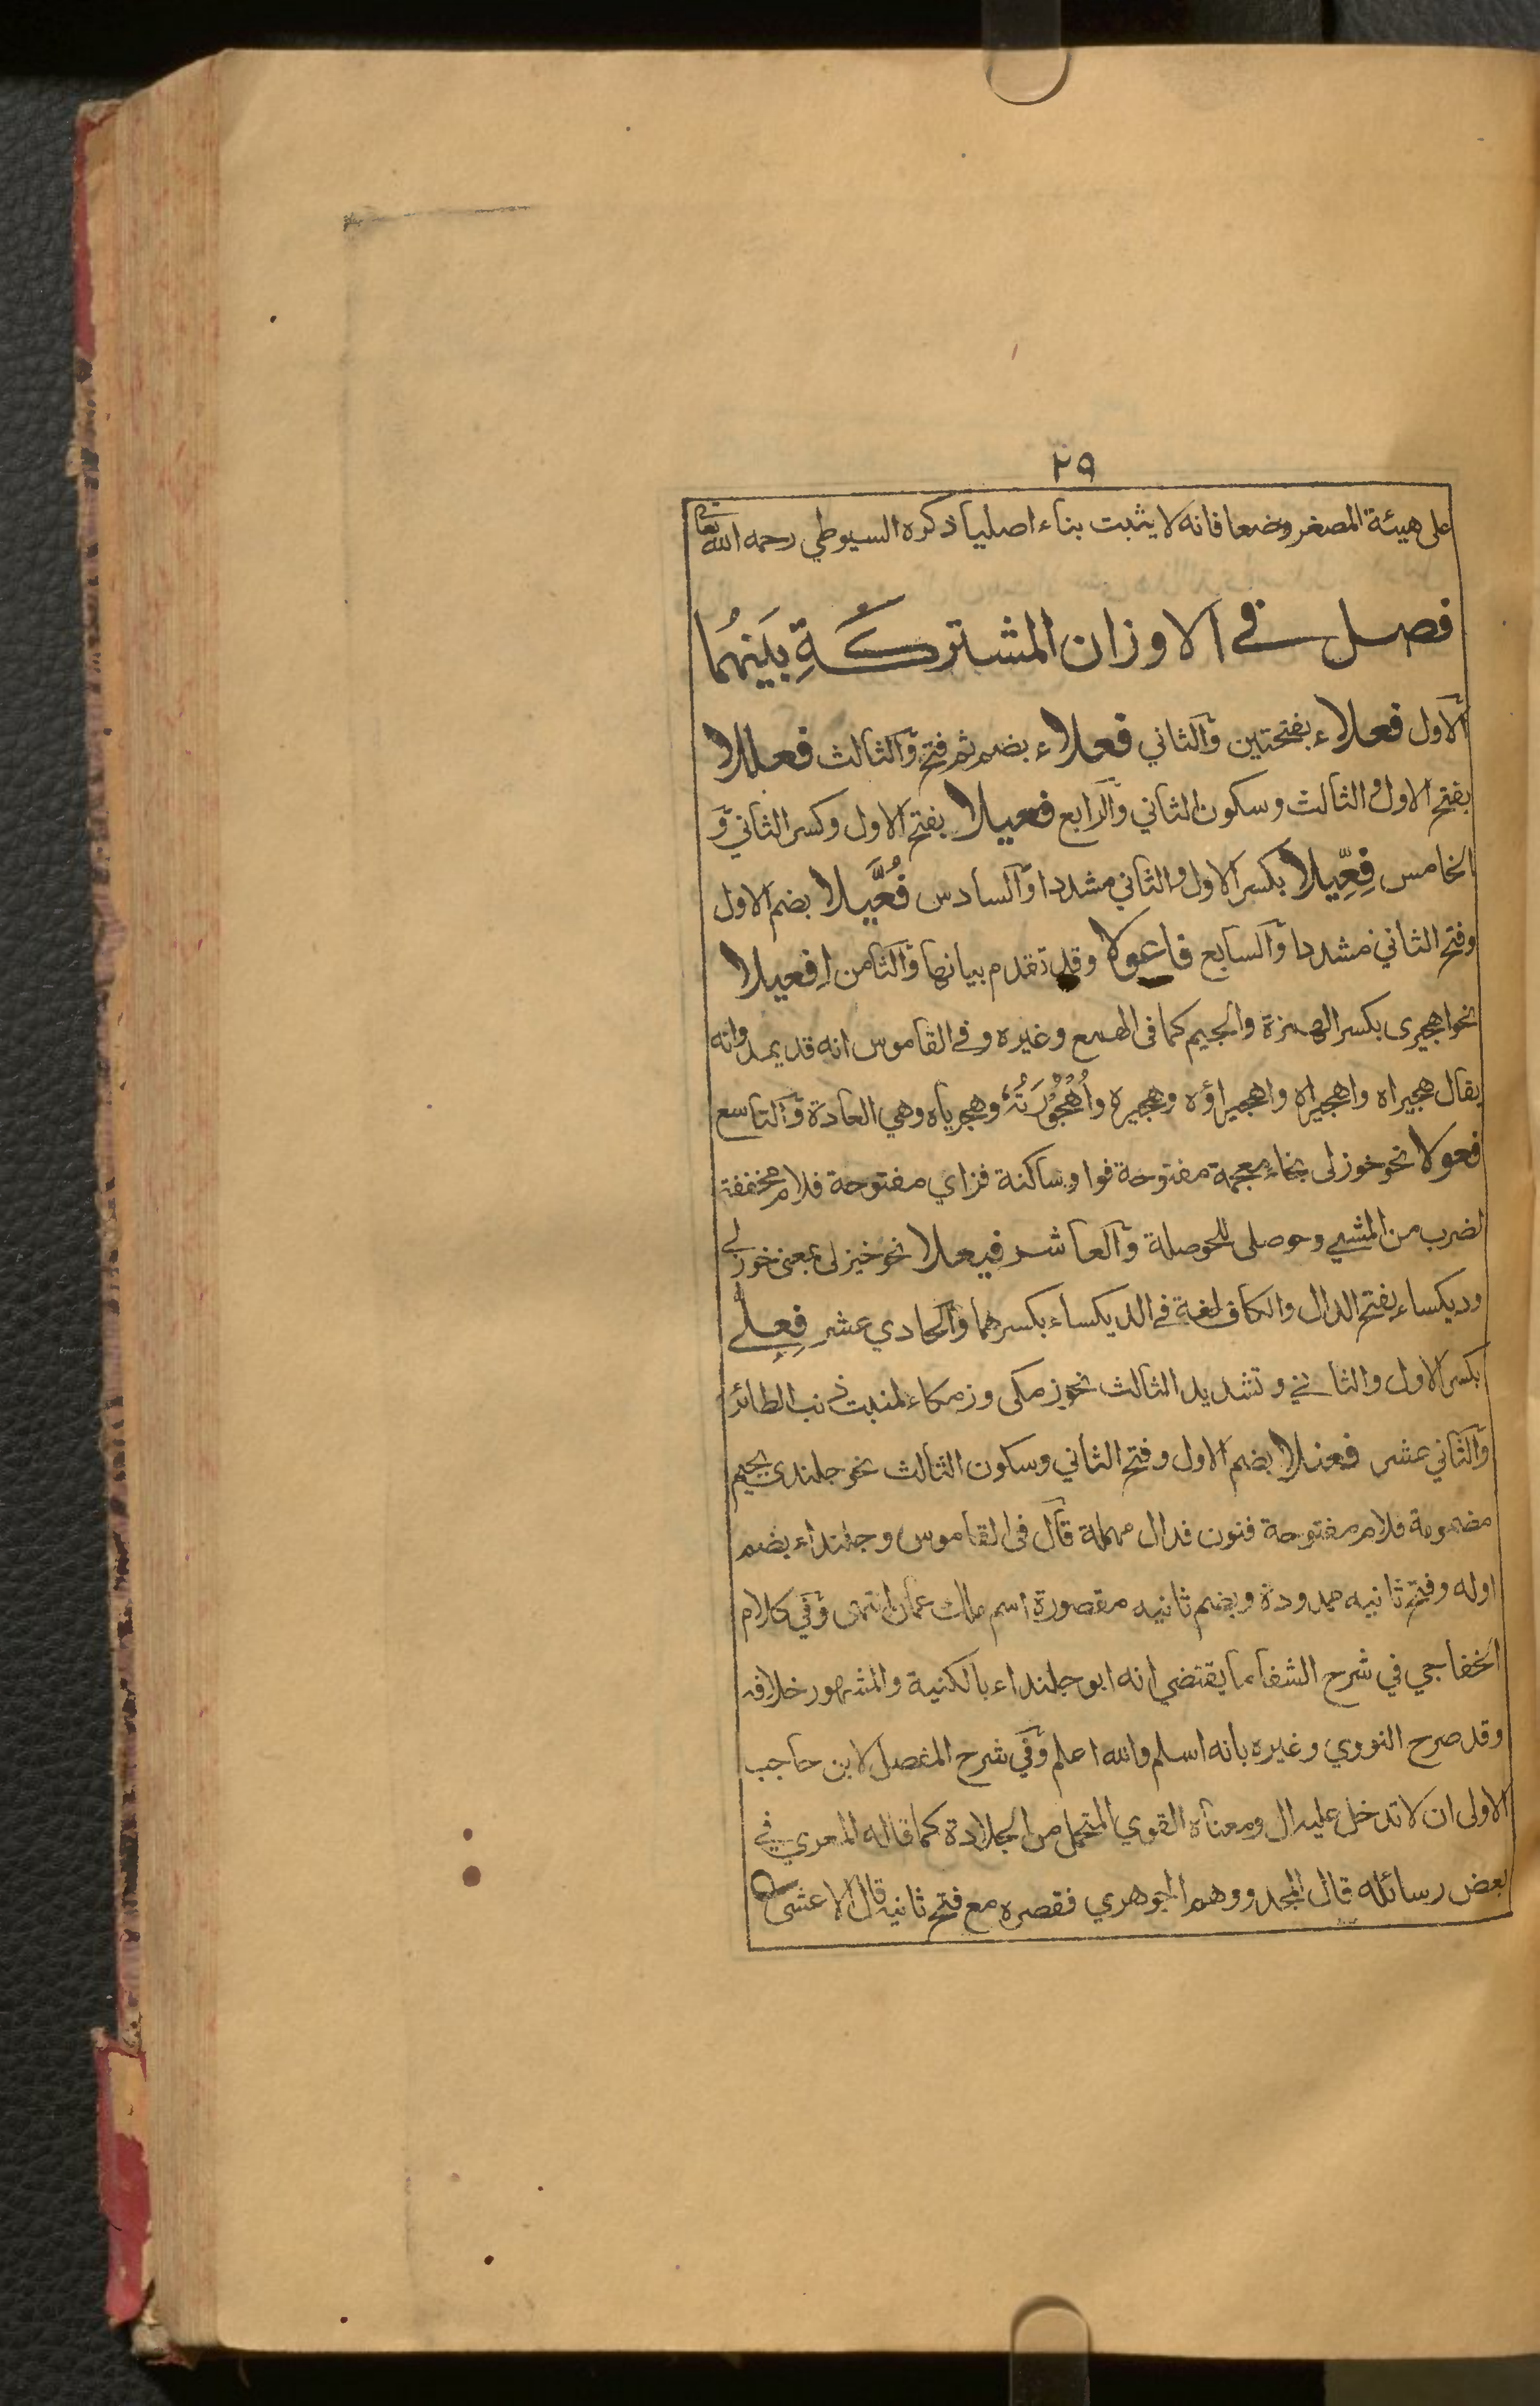 ٢٩
على هيئة المصغر وضعا فانه لا يثبت بناء اصليا ذكره السيوطي رحمه الله تعالى
فصل في الاوزان المشتركَةِ بَينهُما
الاول فعلاء بفتحتين والثاني فعلاء بضم ثم فتح والثالث فعللا
بفتح الاول والثالث وسكون الثاني والرابع فعيلا بفتح الاول وكسر الثاني و
الخامس فِعِّيلا بكسر الاول والثاني مشددا والسادس فُعَّيلا بضم الاول
وفتح الثاني مشددا والسابع فاعولا وقد تقدم بيانها والثامن اِفعيلا
نحو اهجيرى بكسر الهمزة والجيم كما في الهمع وغيره وفي القاموس انه قد يمد وانه
يقال هجيراه واهجيراه واهجيراؤه وهجيره واُهْجُوْرَتُهُ وهجرياه وهي العادة والتاسع
فعولا نحو خوزلى بخاء معجمة مفتوحة فواو ساكنة فزاي مفتوحة فلام مخففة
لضرب من المشي وحوصلى للحوصلة والعاشر فيعلا نحو خيزلى بمعنى خوزلى
وديكساء بفتح الدال والكاف لغة في الديكساء بكسرهما والحادي عشر فِعِلّى
بكسر الاول والثاني وتشديد الثالث نحو زمكى وزمكاء لمنبت ذنب الطائر
والثاني عشر فعنلا بضم الاول وفتح الثاني وسكون الثالث نحو جلندى بجيم
مضمومة فلام مفتوحة فنون فدال مهملة قال في القاموس وجلنداء بضم
اوله وفتح ثانيه ممدودة وبضم ثانيه مقصورة اسم ملك عمان انتهى وفي كلام
الخفاجي في شرح الشفا ما يقتضي انه ابو جلنداء بالكنية والمشهور خلافه
وقد صرح النووي وغيره بانه اسلم والله اعلم وفي شرح المفصل لابن حاجب
الاولى ان لا تدخل عليه ال ومعناه القوي المتحمل من الجلادة كما قاله المعري في
بعض رسائله قال المجد ووهم الجوهري فقصره مع فتح ثانيه قال الاعشى